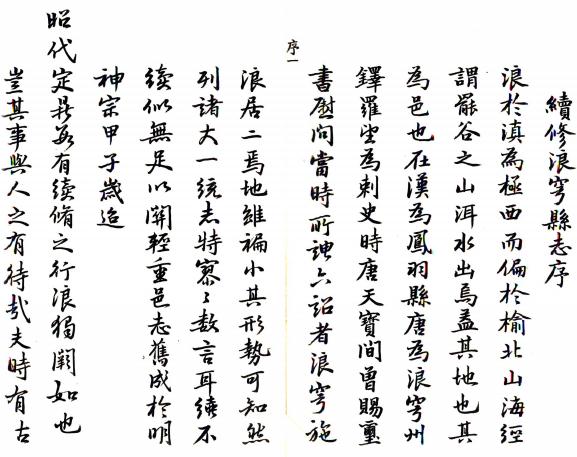 續修浪穹縣志序
浪於滇為極西而偏於榆北山海經
謂罷谷之山洱水出焉蓋其地也其
為邑也在漢為鳳羽縣唐為浪穹州
鐸羅望為刺史時唐天寶間曾賜璽
書慰問當時所謂六詔者浪穹施
序一
浪居二焉地雖褊小其形勢可知然
列諸大一統志特寥〻數言耳續不
續似無足以關輕重邑志舊成於明
神宗甲子歲迨
昭代定鼎每有續脩之行浪獨闕如也
豈其事與人之有待哉夫時有古